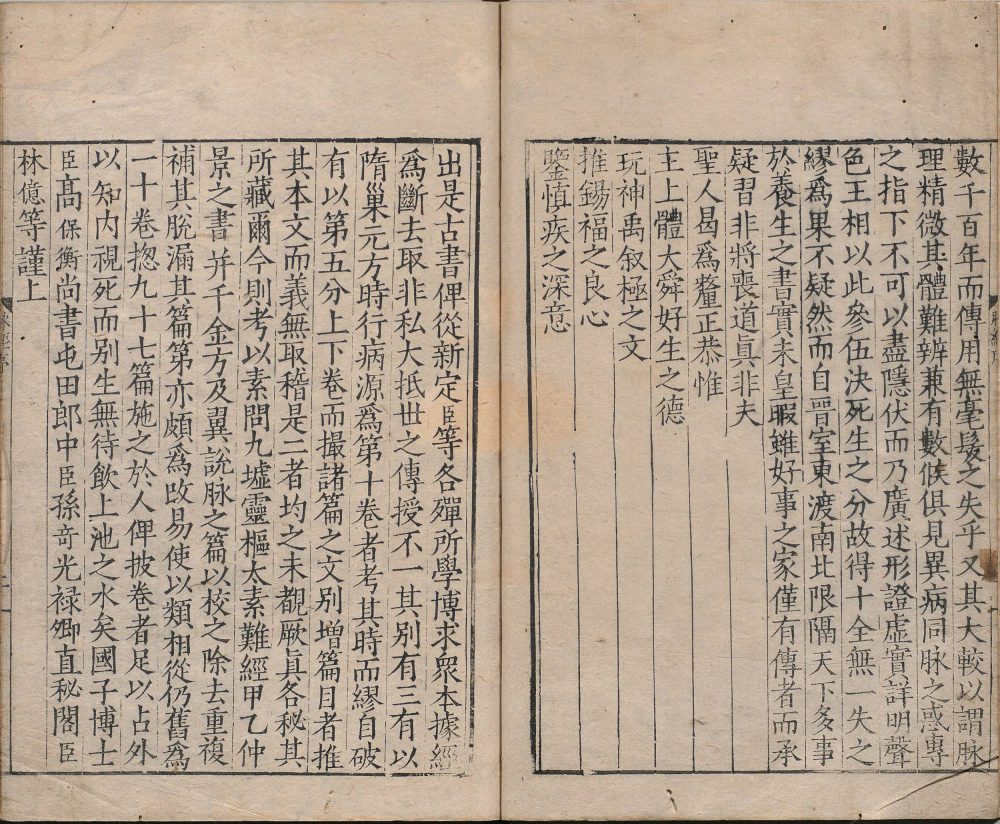 數千百年而傳用無毫髮之失乎又其大較以謂脉
理精微其體難辨兼有數候俱見異病同脉之惑專
之指下不可以盡隱伏而乃廣述形證虛實詳明聲
色王相以此參伍決死生之分故得十全無一失之
繆爲果不疑然而自晉室東渡南北限隔天下多事
於養生之書實未皇暇雖好事之家僅有傳者而承
疑習非將喪道眞非夫
聖人曷爲釐正恭惟
主上體大舜好生之德
玩神禹叙極之文
推錫福之良心
鑒慎疾之深意
出是古書俾從新定臣等各殫所學博求衆本據經
爲斷去取非私大抵世之傳授不一其别有三有以
隋巢元方時行病源爲第十卷者考其時而繆自破
有以第五分上下卷而撮諸篇之文别增篇目者推
其本文而義無取稽是二者均之未覩厥眞各秘其
所藏爾今則考以素問九墟靈樞太素難經甲乙仲
景之書并千金方及翼說脉之篇以校之除去重複
補其脫漏其篇第亦頗爲改易使以類相從仍舊爲
一十卷揔九十七篇施之於人俾披卷者足以占外
以知内視死而别生無待飲上池之水矣國子博士
臣髙保衡尚書屯田郎中臣孫竒光禄卿直秘閣臣
林億等謹上